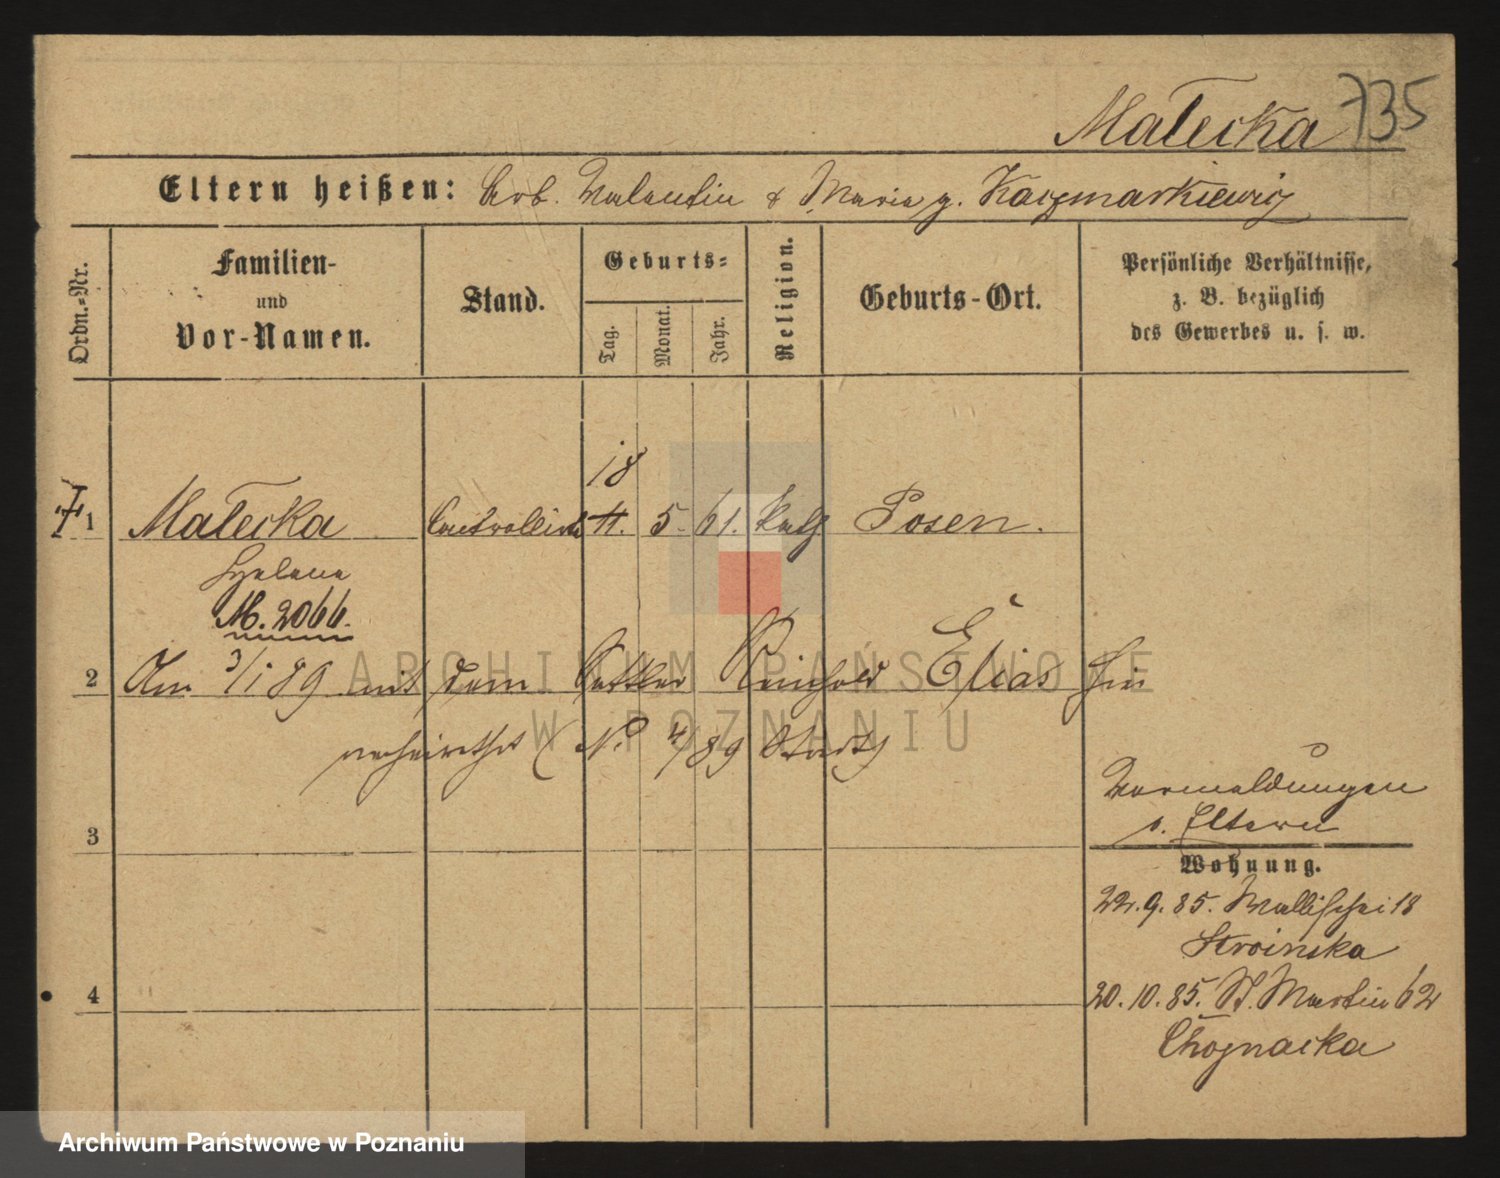 Małecka 735
Eltern heißen: Arb. Valentin & Maria g. Kaczmarkiewicz
Ordn.-Nr.
Familien-
und
Vor-Namen.
Stand.
Geburts-
Tag.
Monat.
Jahr.
Religion.
Geburts-Ort.
Persönliche Verhältnisse,
z. B. bezüglich
des Gewerbes u. s. w.
18
1 Małecka 11. 5. 61. kath Posen.
Helena
M. 2066.
2 Am 3/1 89 mit dem Sattler Reinhold Elias hier
verheirathet (N. 4/89 Stdt)
Vormeldungen
s. Eltern
3
Wohnung.
22. 9. 85. Wallischei 18
Stroinska
4
20. 10. 85. St. Martin 62
Chojnacka
ARCHIWUM PAŃSTWOWE
W POZNANIU
Archiwum Państwowe w Poznaniu